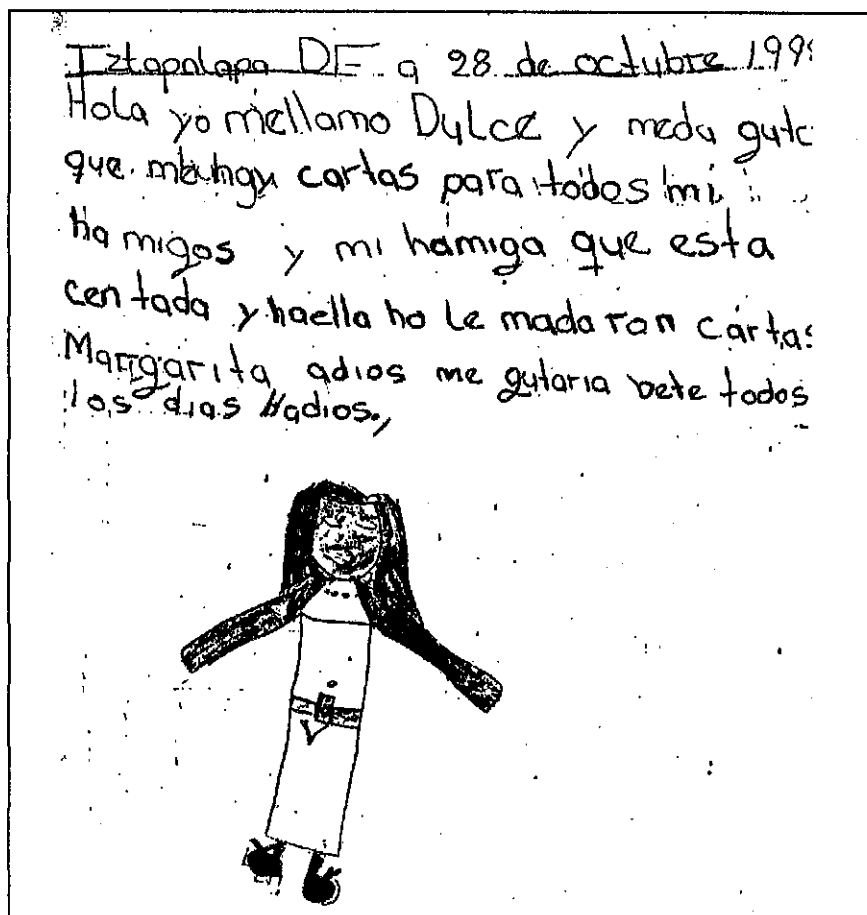 Iztapalapa DF a 28 de octubre 199
Hola yo mellamo Dulce y meda gut
que cartas para todos mi
hamigos y mi hamiga que esta
centada y haella no le madaron cartas
Marrgarita adios me gutaria bete todos
los dias Hadios.,